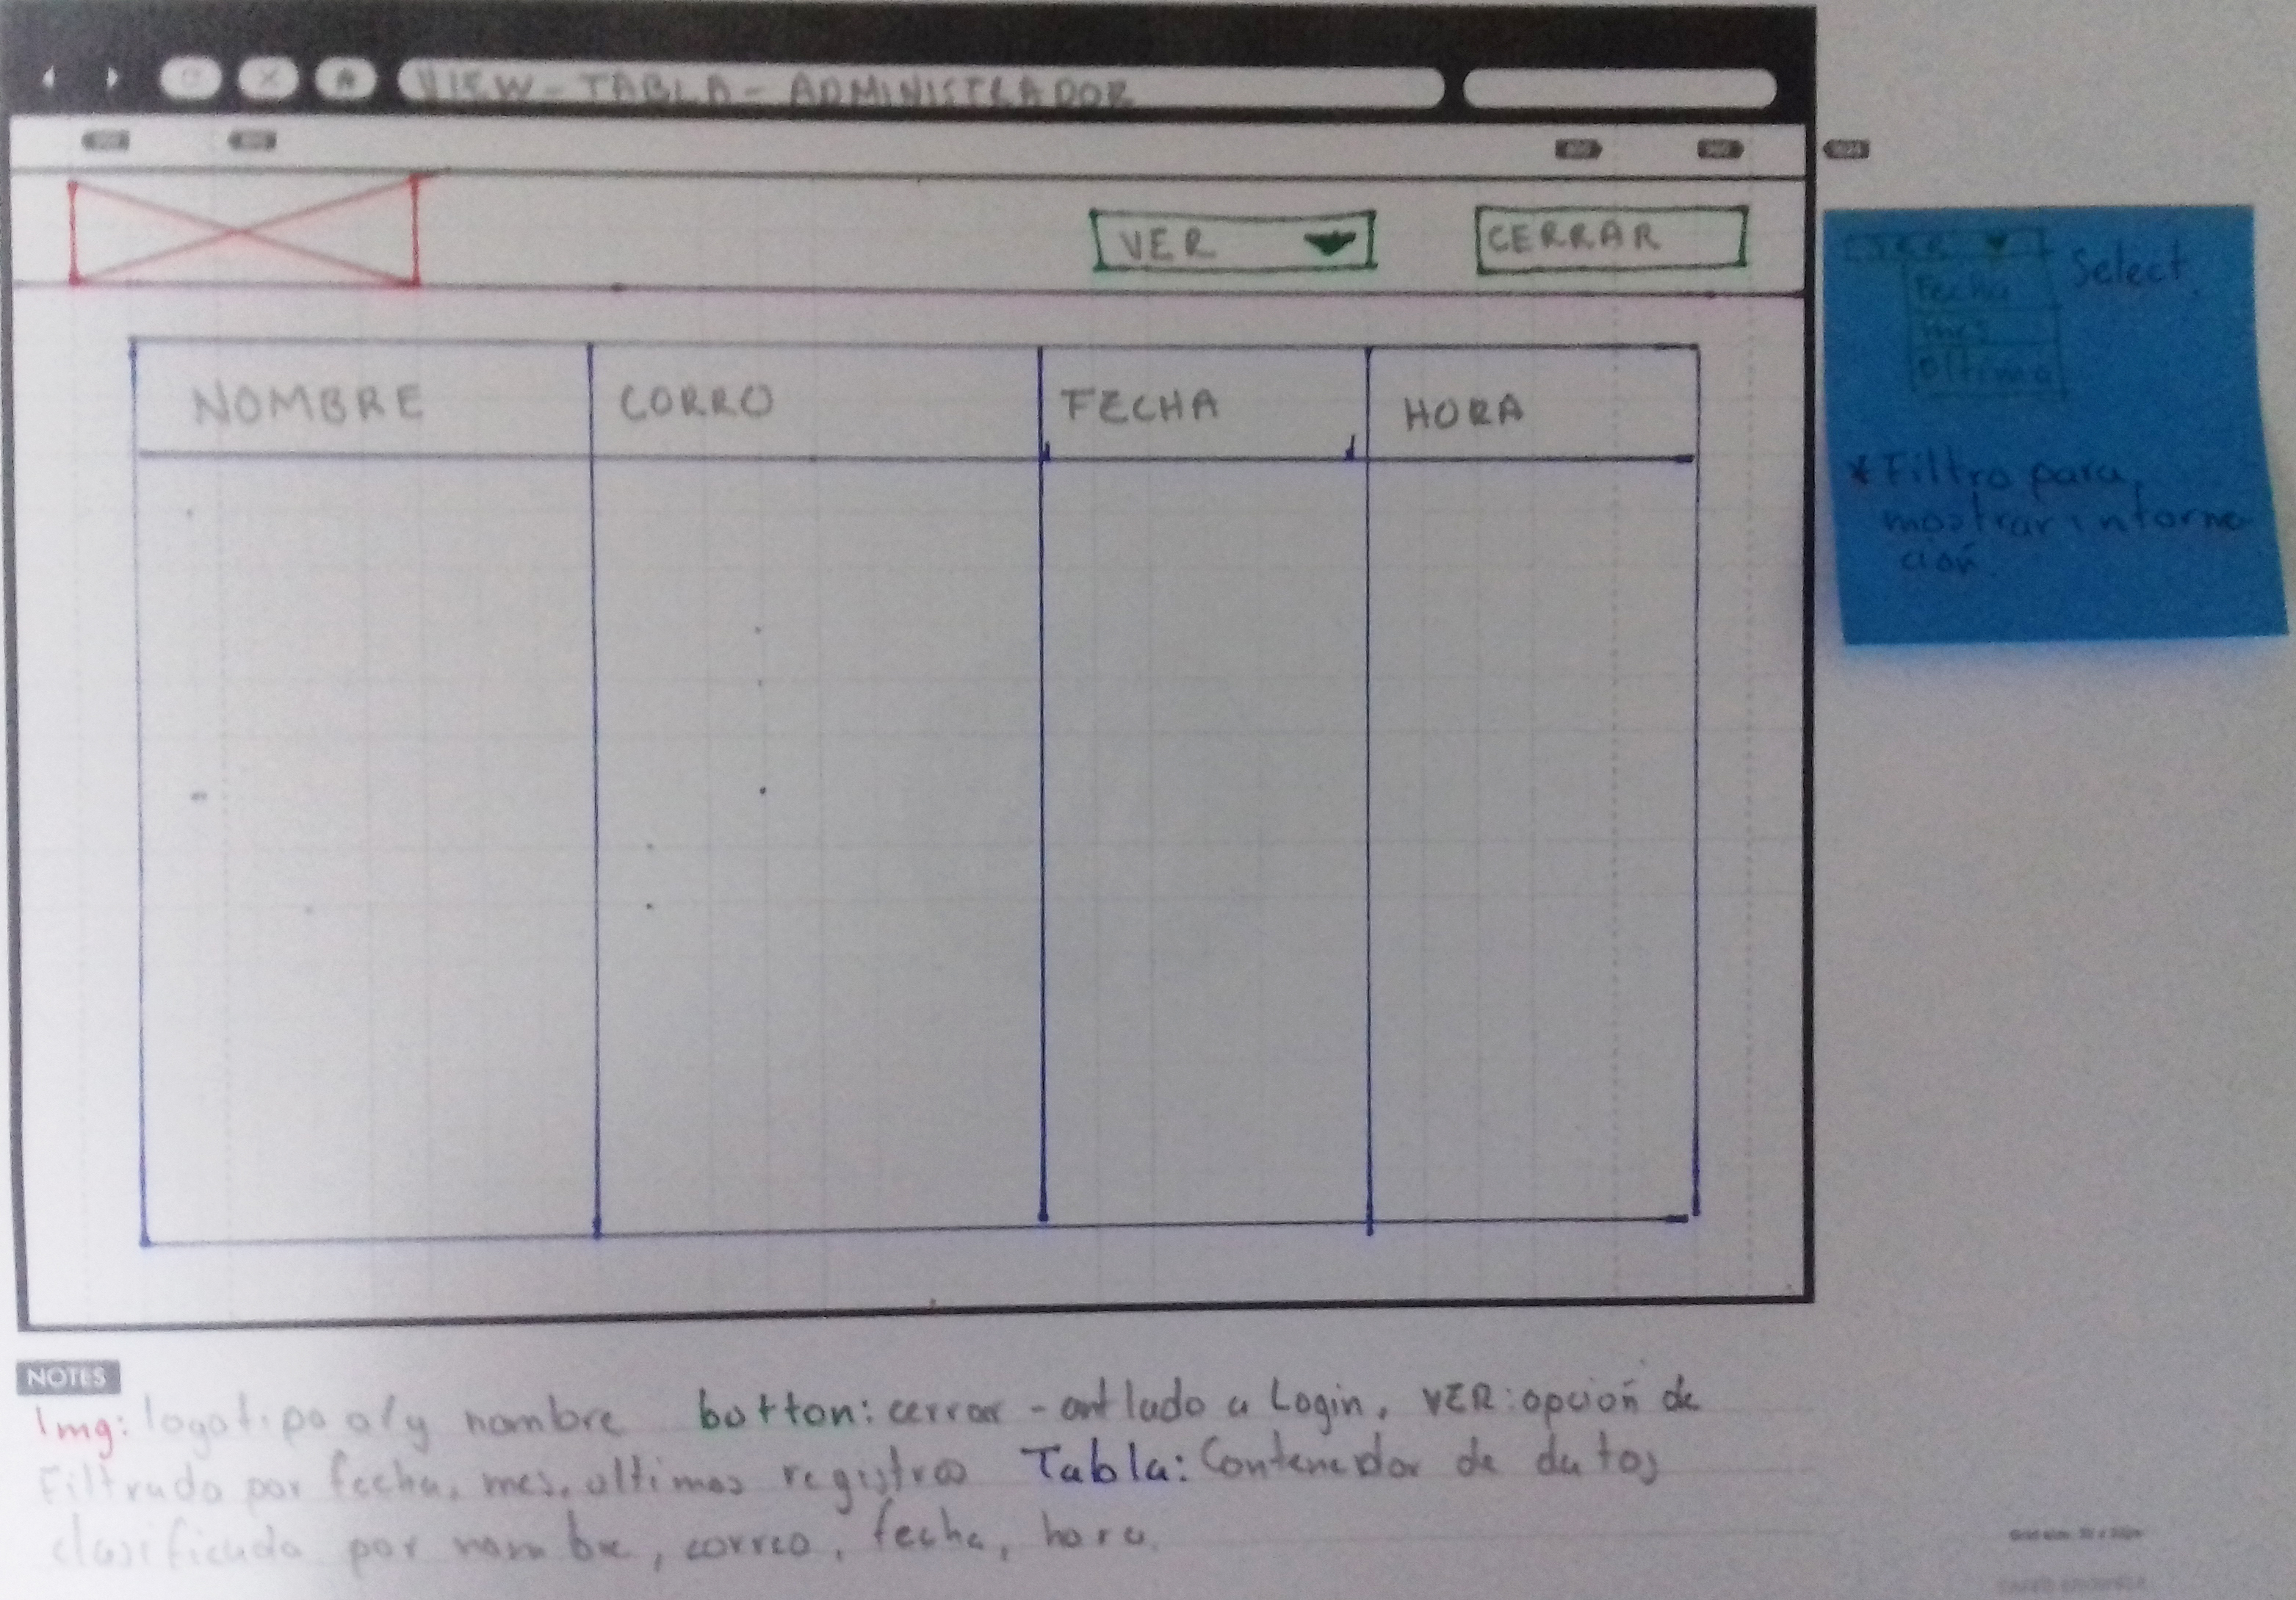 VIEW-TABLA-ADMINISTRADOR
VER
CERRAR
NOMBRE
CORRO
FECHA
HORA
Select.
Fecha
mes
último
* Filtro para
mostrar informa
ción.
NOTES
Img: logotipo o/y nombre button: cerrar - lado a Login. VER: opción de
Filtrado por fecha, mes, ultimos registros Tabla: Contenedor de datos
clasificada por nombre, correo, fecha, hora.